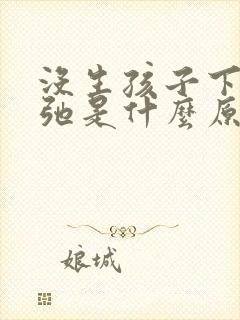 没生孩子下
弛是什麼原
娘城